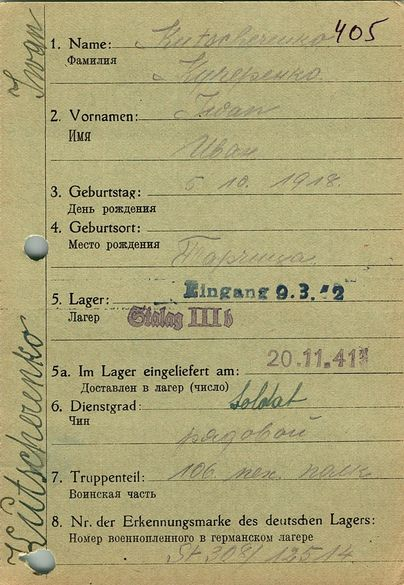 Iwan
Kutscherenko
405
1. Name: Kutscherenko
Фамилия
Кучеренко
2. Vornamen: Iwan
Имя
Иван
3. Geburtstag: 5 10. 1918.
День рождения
4. Geburtsort:
Место рождения
Eingang 9.3.42
5. Lager: Stalag III b
Лагер
5a. Im Lager eingeliefert am: 20.11.41
Доставлен в лагер (число)
6. Dienstgrad: Soldat
Чин
рядовой
7. Truppenteil: 106 пех. полк
Воинская часть
8. Nr. der Erkennungsmarke des deutschen Lagers:
Номер военнопленного в германском лагере
St 308/ 12514